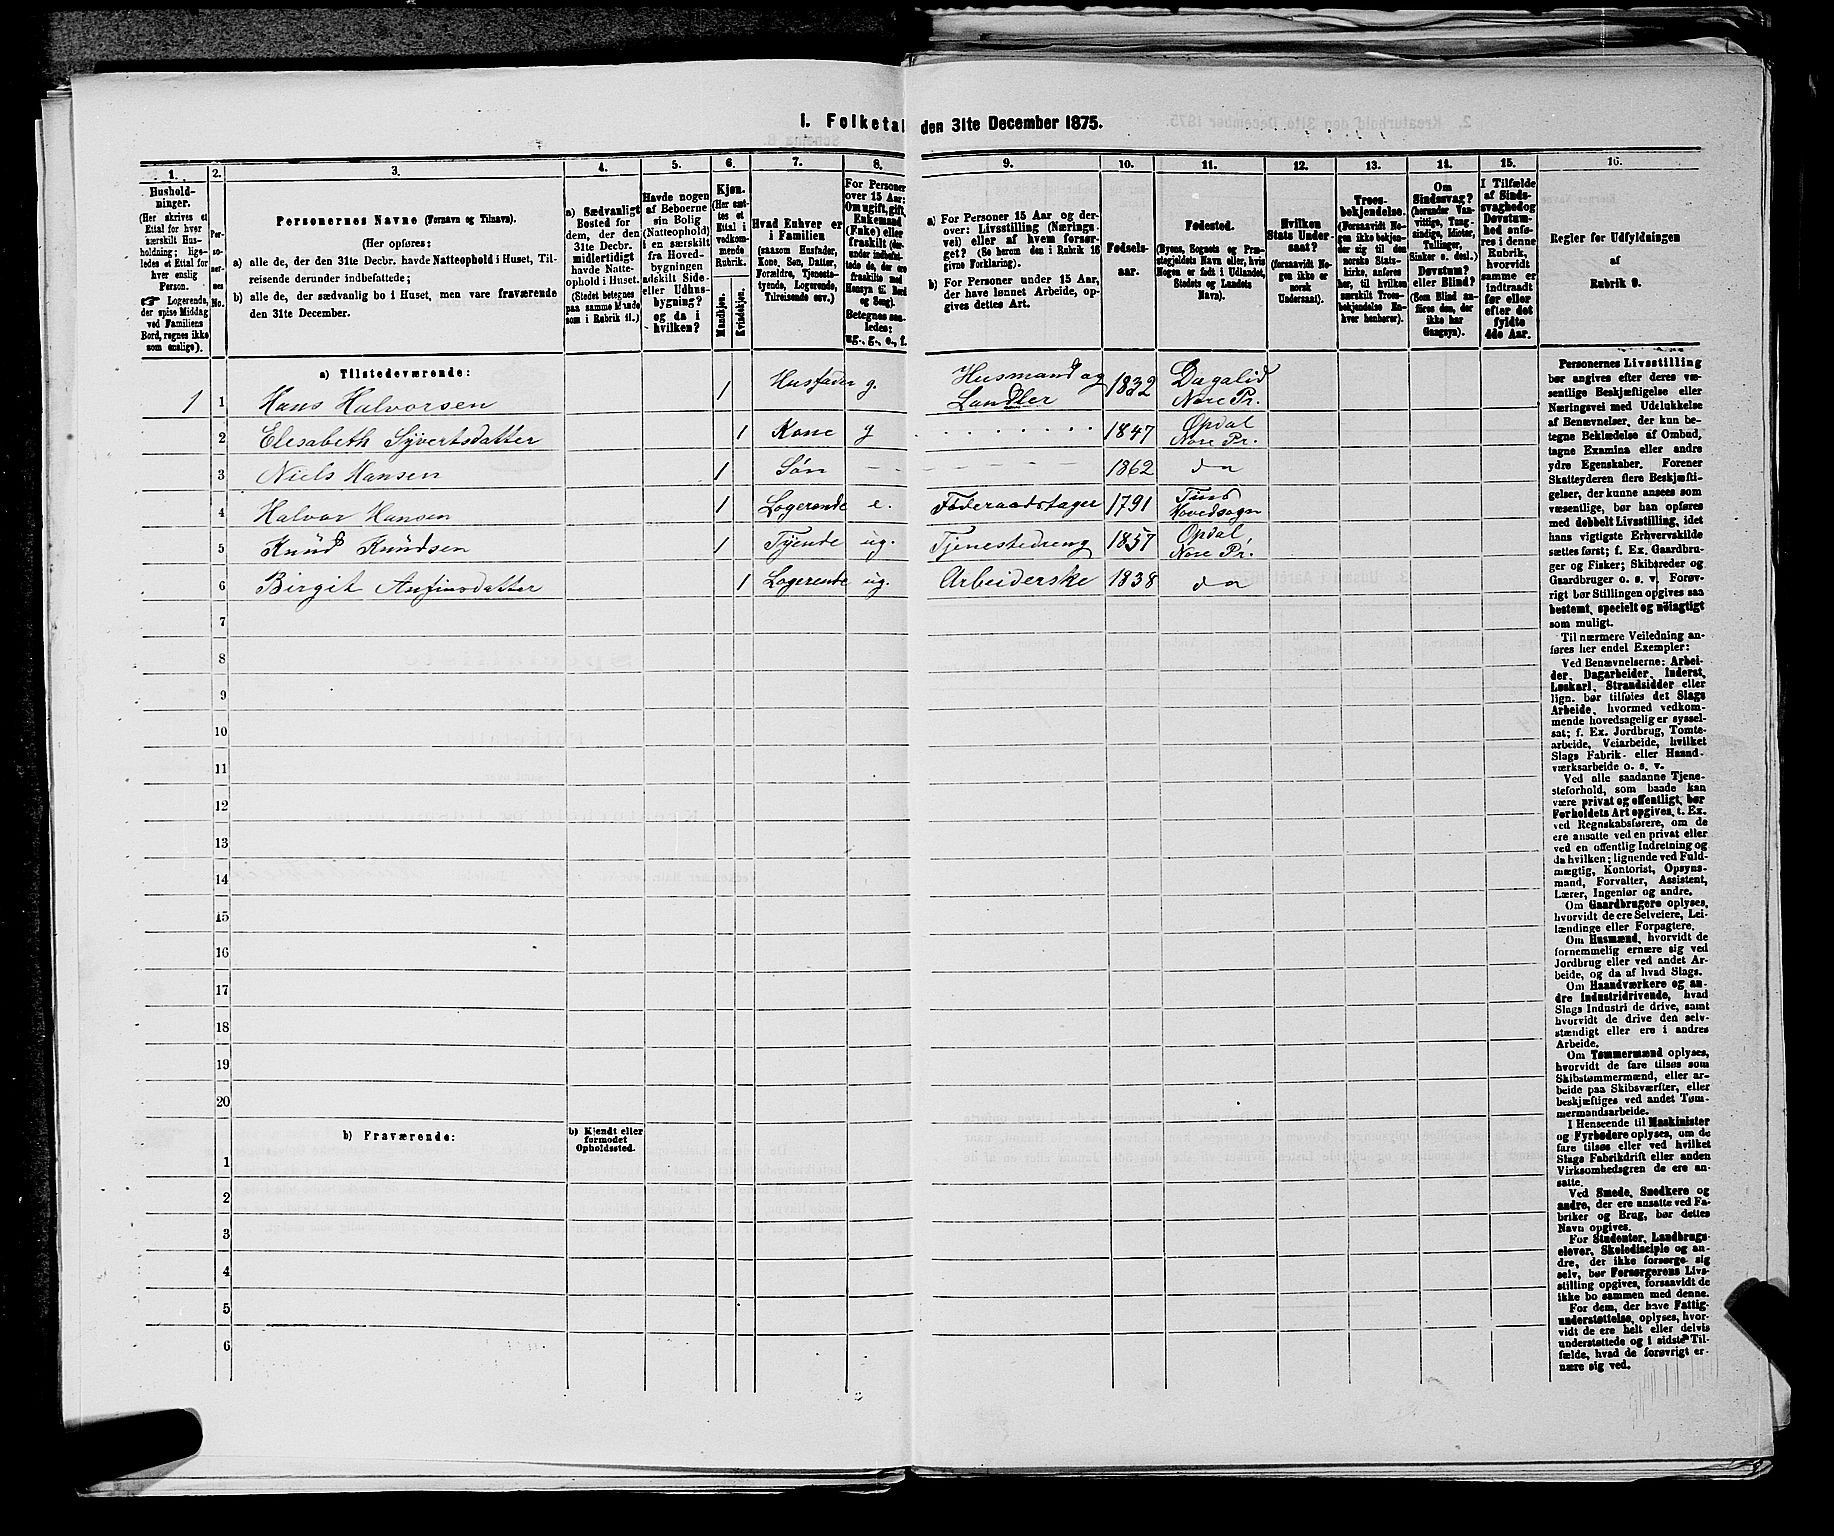 1. Folketal den 31te December 1875.
1. 2. 3. 4. 5. 6. 7. 8. 9. 10. 11. 12. 13. 14. 15. 16.
Hushold-
ninger.
(Her skrives et
Ettal for hver
særskilt Hus-
holdning; lige-
ledes et Ettal for
hver enslig
Person.
☞ Logerende,
der spise Middag
ved Familiens
Bord, regnes ikke
som enslige).
Per-
so-
ner-
nes
No.
Personernes Navne (Fornavn og Tilnavn).
(Her opføres:
a) alle de, der den 31te Decbr. havde Natteophold i Huset, Til-
reisende derunder indbefattede;
b) alle de, der sædvanlig bo i Huset, men vare fraværende
den 31te December.
a) Sædvanligt
Bosted for
dem, der den
31te Decbr.
midlertidigt
havde Natte-
ophold i Huset.
(Stedet betegnes
paa samme Maade
som i Rubrik 11.)
Havde nogen
af Beboerne
sin Bolig
(Natteophold)
i en særskilt
fra Hoved-
bygningen
adskilt Side-
eller Udhus-
bygning?
og da i
hvilken?
Kjøn.
(Her sæt-
tes et
Ettal i
vedkom-
mende
Rubrik.
Mandkjøn.
Kvindekjøn.
Hvad Enhver er
i Familien
(saasom Husfader,
Kone, Søn, Datter,
Forældre, Tjeneste-
tyende, Logerende,
Tilreisende osv.)
For Personer
over 15 Aar:
Om ugift, gift,
Enkemand
(Enke) eller
fraskilt (der-
under indbefat-
tede de, der ere
fraskilte med
Hensyn til Bord
og Seng).
Betegnes saa-
ledes:
ug., g., e., f.
a) For Personer 15 Aar og der-
over: Livsstilling (Nærings-
vei) eller af hvem forsør-
get? (Se herom den i Rubrik 16
givne Forklaring).
b) For Personer under 15 Aar,
der have lønnet Arbeide, op-
gives dettes Art.
Fødsels-
aar.
Fødested.
(Byens, Sognets og Præ-
stegjeldets Navn eller, hvis
Nogen er født i Udlandet,
Stedets og Landets
Navn).
Hvilken
Stats Under-
saat?
(forsaavidt No-
gen ikke er
norsk
Undersaat).
Troes-
bekjendelse.
(Forsaavidt No-
gen ikke bekjen-
der sig til den
norske Stats-
kirke, anføres
her, til hvilken
særskilt Troes-
bekjendelse En-
hver henhører).
Om
Sindssvag?
(herunder Van-
vittige, Tung-
sindige, Idioter,
Tullinger,
Sinker o. desl.)
Døvstum?
eller Blind?
(Som Blind an-
føres den, der
ikke har
Gangsyn).
I Tilfælde
af Sinds-
svaghed og
Døvstum-
hed anfø-
res i denne
Rubrik,
hvorvidt
samme er
indtraadt
før eller
efter det
fyldte
4de Aar.
Regler for Udfyldningen
af
Rubrik 9.
a) Tilstedeværende:
1 1 Hans Halvorsen 1 Husfader g. Husmand og Landler 1832 Dagalid Nore Pr.
2 Elesabeth Syvertsdatter 1 Kone g 1847 Opdal Nore Pr.
3 Niels Hansen 1 Søn 1862 do
4 Halvor Hansen 1 Logerende e. Føderaadstager 1791 Tins Hovedsogn
5 Knud Knudsen 1 Tyende ug. Tjenestedreng 1857 Opdal Nore Pr.
6 Birgit Anfinsdatter 1 Logerende ug. Arbeiderske 1838 do
7
8
9
10
11
12
13
14
15
16
17
18
19
20
b) Fraværende:
b) Kjendt eller
formodet
Opholdssted.
1
2
3
4
5
6
Personernes Livsstilling
bør angives efter deres væ-
sentlige Beskjæftigelse eller
Næringsvei med Udelukkelse
af Benævnelser, der kun be-
tegne Beklædelse af Ombud,
tagne Examina eller andre
ydre Egenskaber. Forener
Skatteyderen flere Beskjæfti-
gelser, der kunne ansees som
væsentlige, bør han opføres
med dobbelt Livsstilling, idet
hans vigtigste Erhvervskilde
sættes først; f. Ex. Gaardbru-
ger og Fisker; Skibsreder og
Gaardbruger o. s. v. Forøv-
rigt bør Stillingen opgives saa
bestemt, specielt og nøiagtigt
som muligt.
Til nærmere Veiledning an-
føres her endel Exempler:
Ved Benævnelserne: Arbei-
der, Dagarbeider, Inderst,
Løskarl, Strandsidder eller
lign. bør tilføies det Slags
Arbeide, hvormed vedkom-
mende hovedsagelig er syssel-
sat; f. Ex. Jordbrug, Tomte-
arbeide, Veiarbeide, hvilket
Slags Fabrik- eller Haand-
værksarbeide o. s. v.
Ved alle saadanne Tjene-
steforhold, som baade kan
være privat og offentligt, bør
Forholdets Art opgives, t. Ex.
ved Regnskabsførere, om de
ere ansatte ved en privat eller
ved en offentlig Indretning og
da hvilken; lignende ved Fuld-
mægtig, Kontorist, Opsyns-
mand, Forvalter, Assistent,
Lærer, Ingeniør og andre.
Om Gaardbrugere oplyses,
hvorvidt de ere Selveiere, Lei-
lændinge eller Forpagtere.
Om Husmænd, hvorvidt de
fornemmelig ernære sig ved
Jordbrug eller ved andet Ar-
beide, og da af hvad Slags.
Om Haandværkere og an-
dre Industridrivende, hvad
Slags Industri de drive, samt
hvorvidt de drive den selv-
stændigt eller ere i andres
Arbeide.
Om Tømmermænd oplyses,
hvorvidt de fare tilsøs som
Skibstømmermænd, eller ar-
beide paa Skibsværfter, eller
beskjæftiges ved andet Tøm-
mermandsarbeide.
I Henseende til Maskinister
og Fyrbødere oplyses, om de
fare tilsøs eller ved hvilket
Slags Fabrikdrift eller anden
Virksomhedsgren de ere an-
satte.
Ved Smede, Snedkere og
andre, der ere ansatte ved Fa-
briker og Brug, bør dettes
Navn opgives.
For Studenter, Landbrugs-
elever, Skoledisciple og an-
dre, der ikke forsørge sig
selv, bør Forsørgerens Livs-
stilling opgives, forsaavidt de
ikke bo sammen med denne.
For dem, der have Fattig-
understøttelse, oplyses, hvor-
vidt de ere helt eller delvis
understøttede og i sidste Til-
fælde, hvad de forøvrigt er-
nære sig ved.